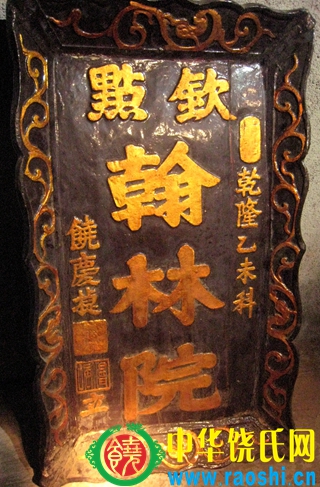 欽點
翰林院
乾隆乙未科
饒慶捷
立
饒
中华饶氏网
www.raoshi.cn